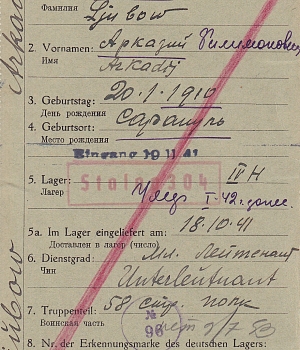 Фамилия
Ljubow
2. Vornamen: Аркадий Филимонович
Имя
Arkadij
3. Geburtstag: 20.1.1910
День рождения
4. Geburtsort: Сарапуль
Место рождения
Eingang 19 11 41
5. Lager: IV H
Лагерь
Stalag 304
I-42
5a. Im Lager eingeliefert am: 18.10.41
Доставлен в лагерь (число)
6. Dienstgrad: Мл. Лейтенант
Чин
Unterleutnant
7. Truppenteil: 58 стр. полк
Воинская часть
№
96
8. Nr. der Erkennungsmarke des deutschen Lagers: